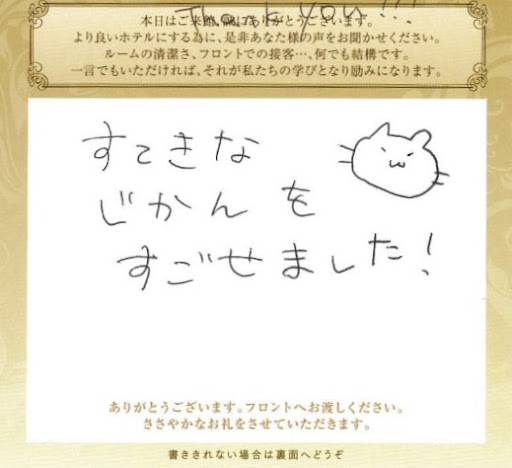 Thank you!!!
本日はご来館、誠にありがとうございます。
より良いホテルにする為に、是非あなた様の声をお聞かせください。
ルームの清潔さ、フロントでの接客…、何でも結構です。
一言でもいただければ、それが私たちの学びとなり励みになります。
すてきな
じかんを
すごせました!
ありがとうございます。フロントへお渡しください。
ささやかなお礼をさせていただきます。
書ききれない場合は裏面へどうぞ